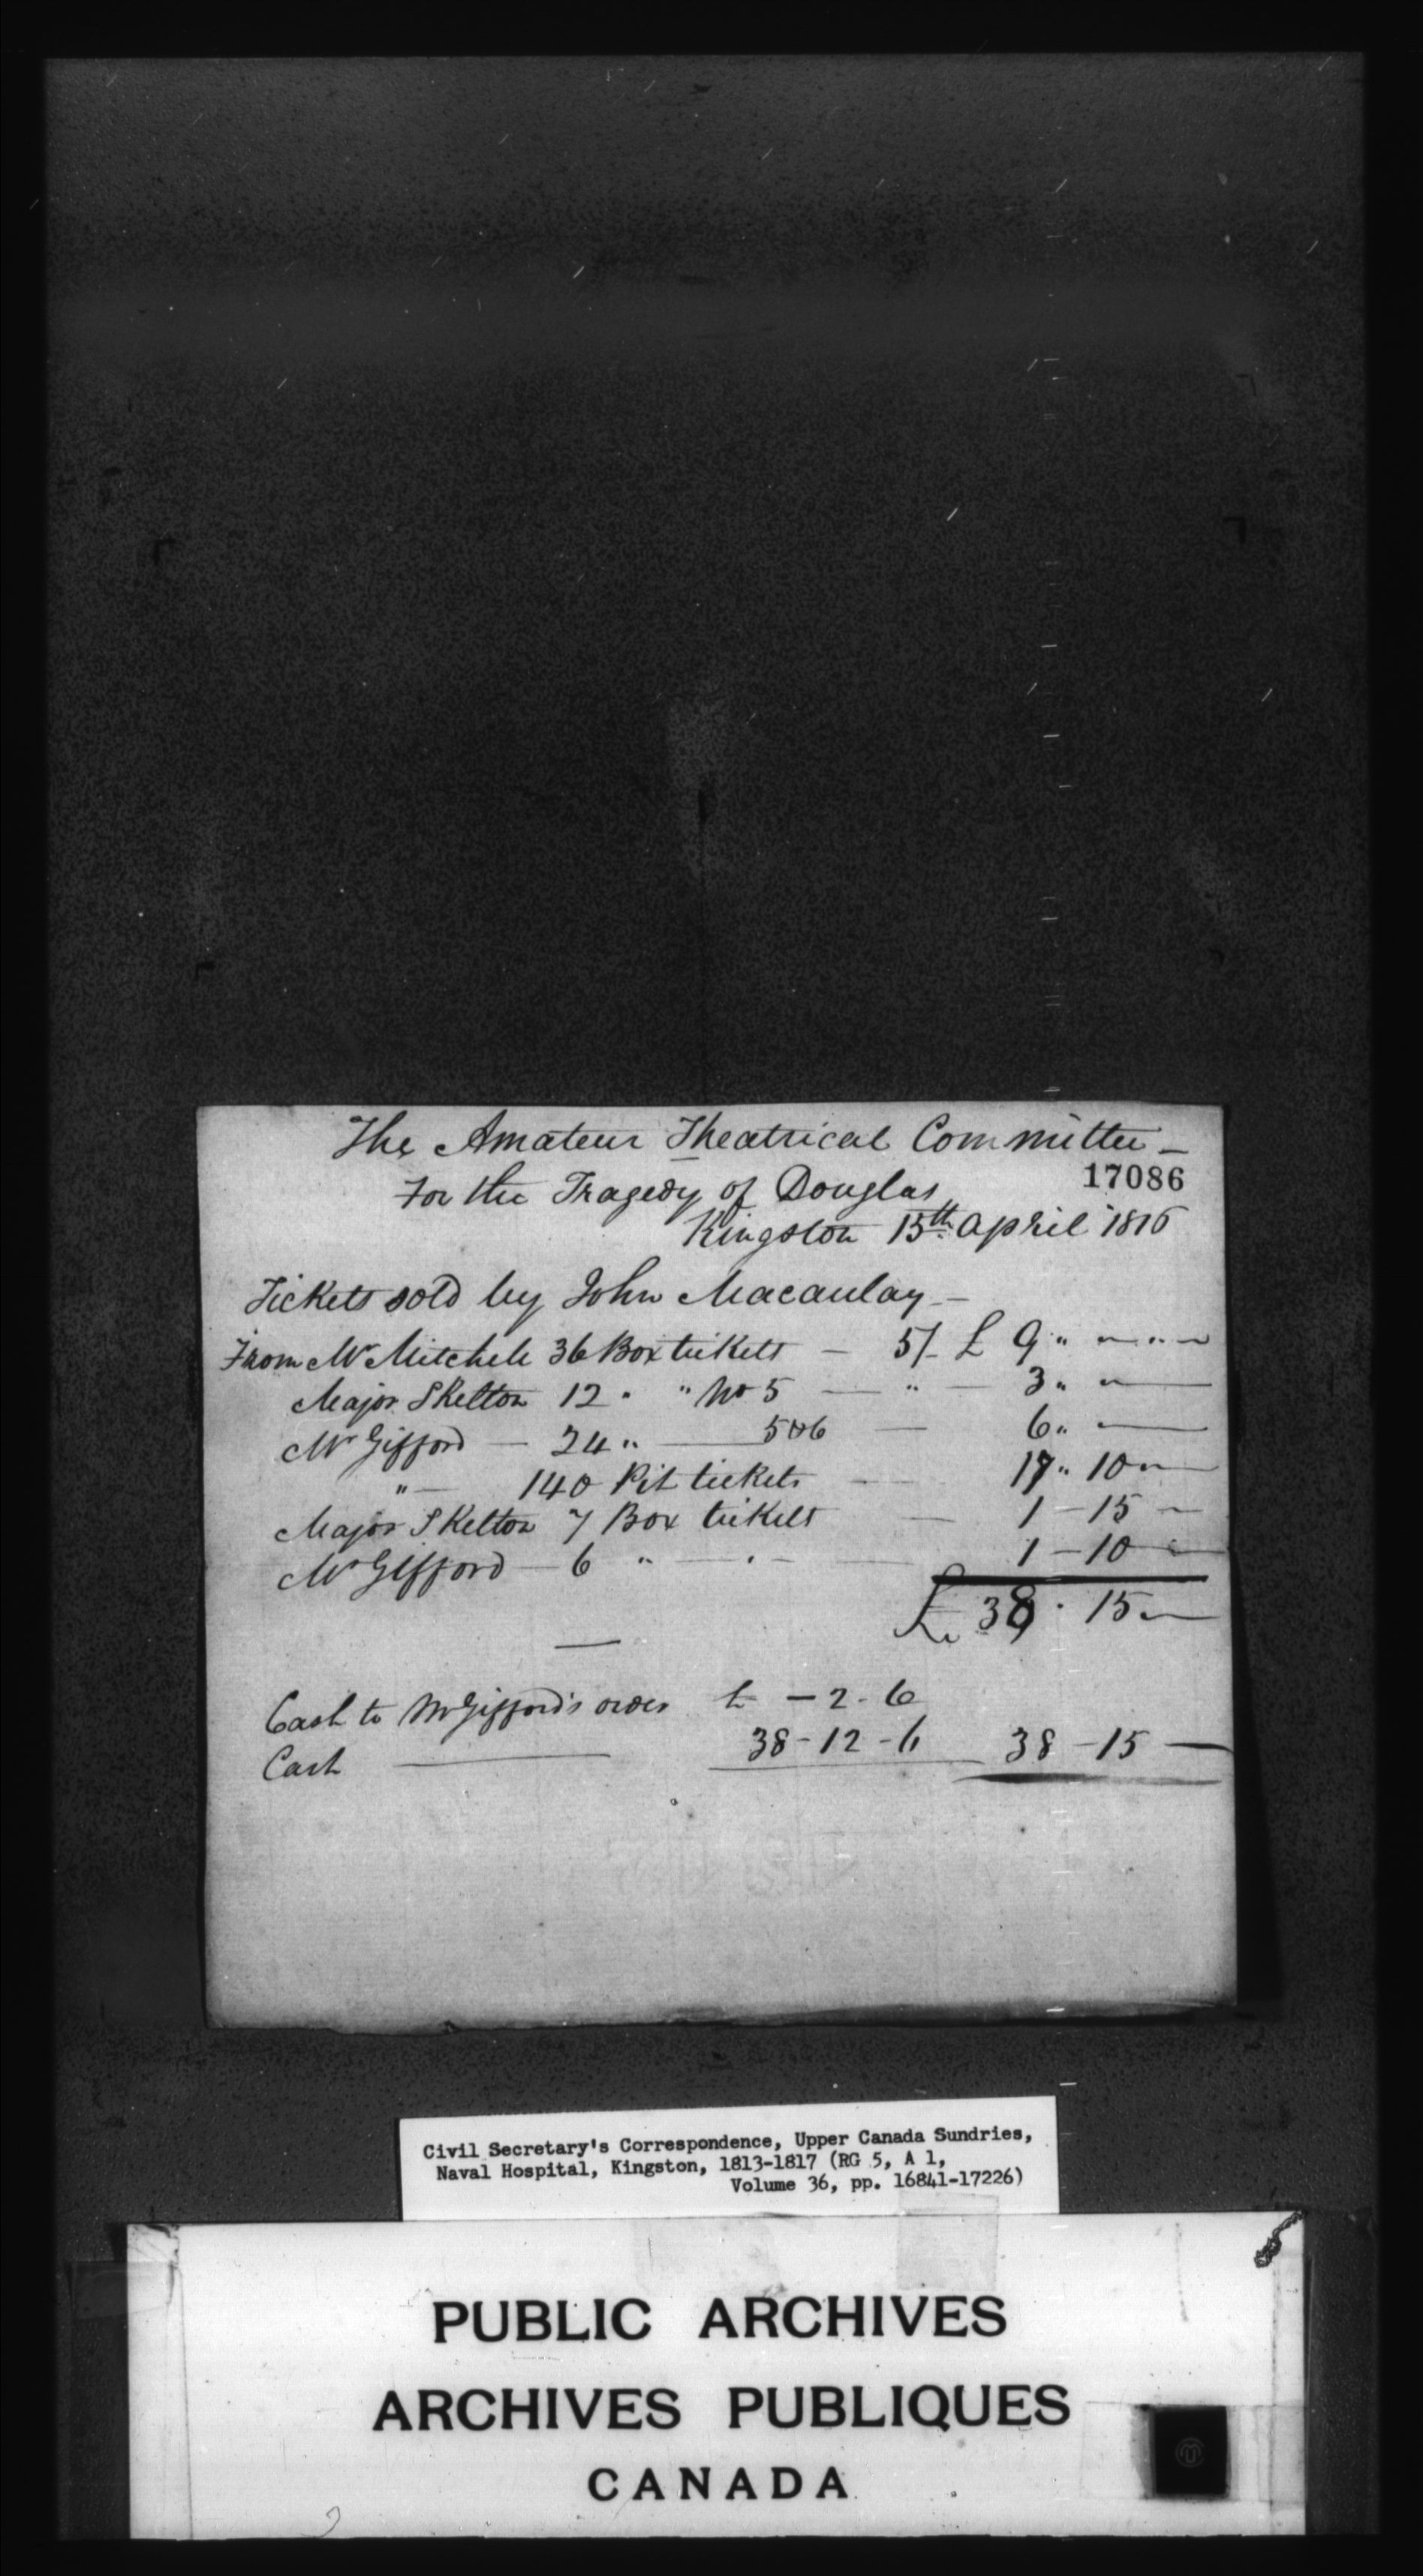 The Amateur Theatrical Committee —
For the Tragedy of Douglas
17086
Kingston 15th. April 1816
Tickets sold by John Macaulay —
From Mr Mitchell 36 Box tickets — 5/- £ 9 " — " —
Major Skelton 12 " " No 5 — " — 3 " —
Mr Gifford — 24 " — 5 & 6 — 6 " —
" — 140 Pit tickets — 17 " 10 " —
Major Skelton 7 Box tickets — 1 – 15 —
Mr Gifford — 6 " — " — 1 – 10 —
£ 38 . 15 —
Cash to Mr Gifford's order £ – 2 - 6
Cash — 38 - 12 - 6 38 – 15 —
Civil Secretary's Correspondence, Upper Canada Sundries,
Naval Hospital, Kingston, 1813-1817 (RG 5, A 1,
Volume 36, pp. 16841-17226)
PUBLIC ARCHIVES
ARCHIVES PUBLIQUES
CANADA